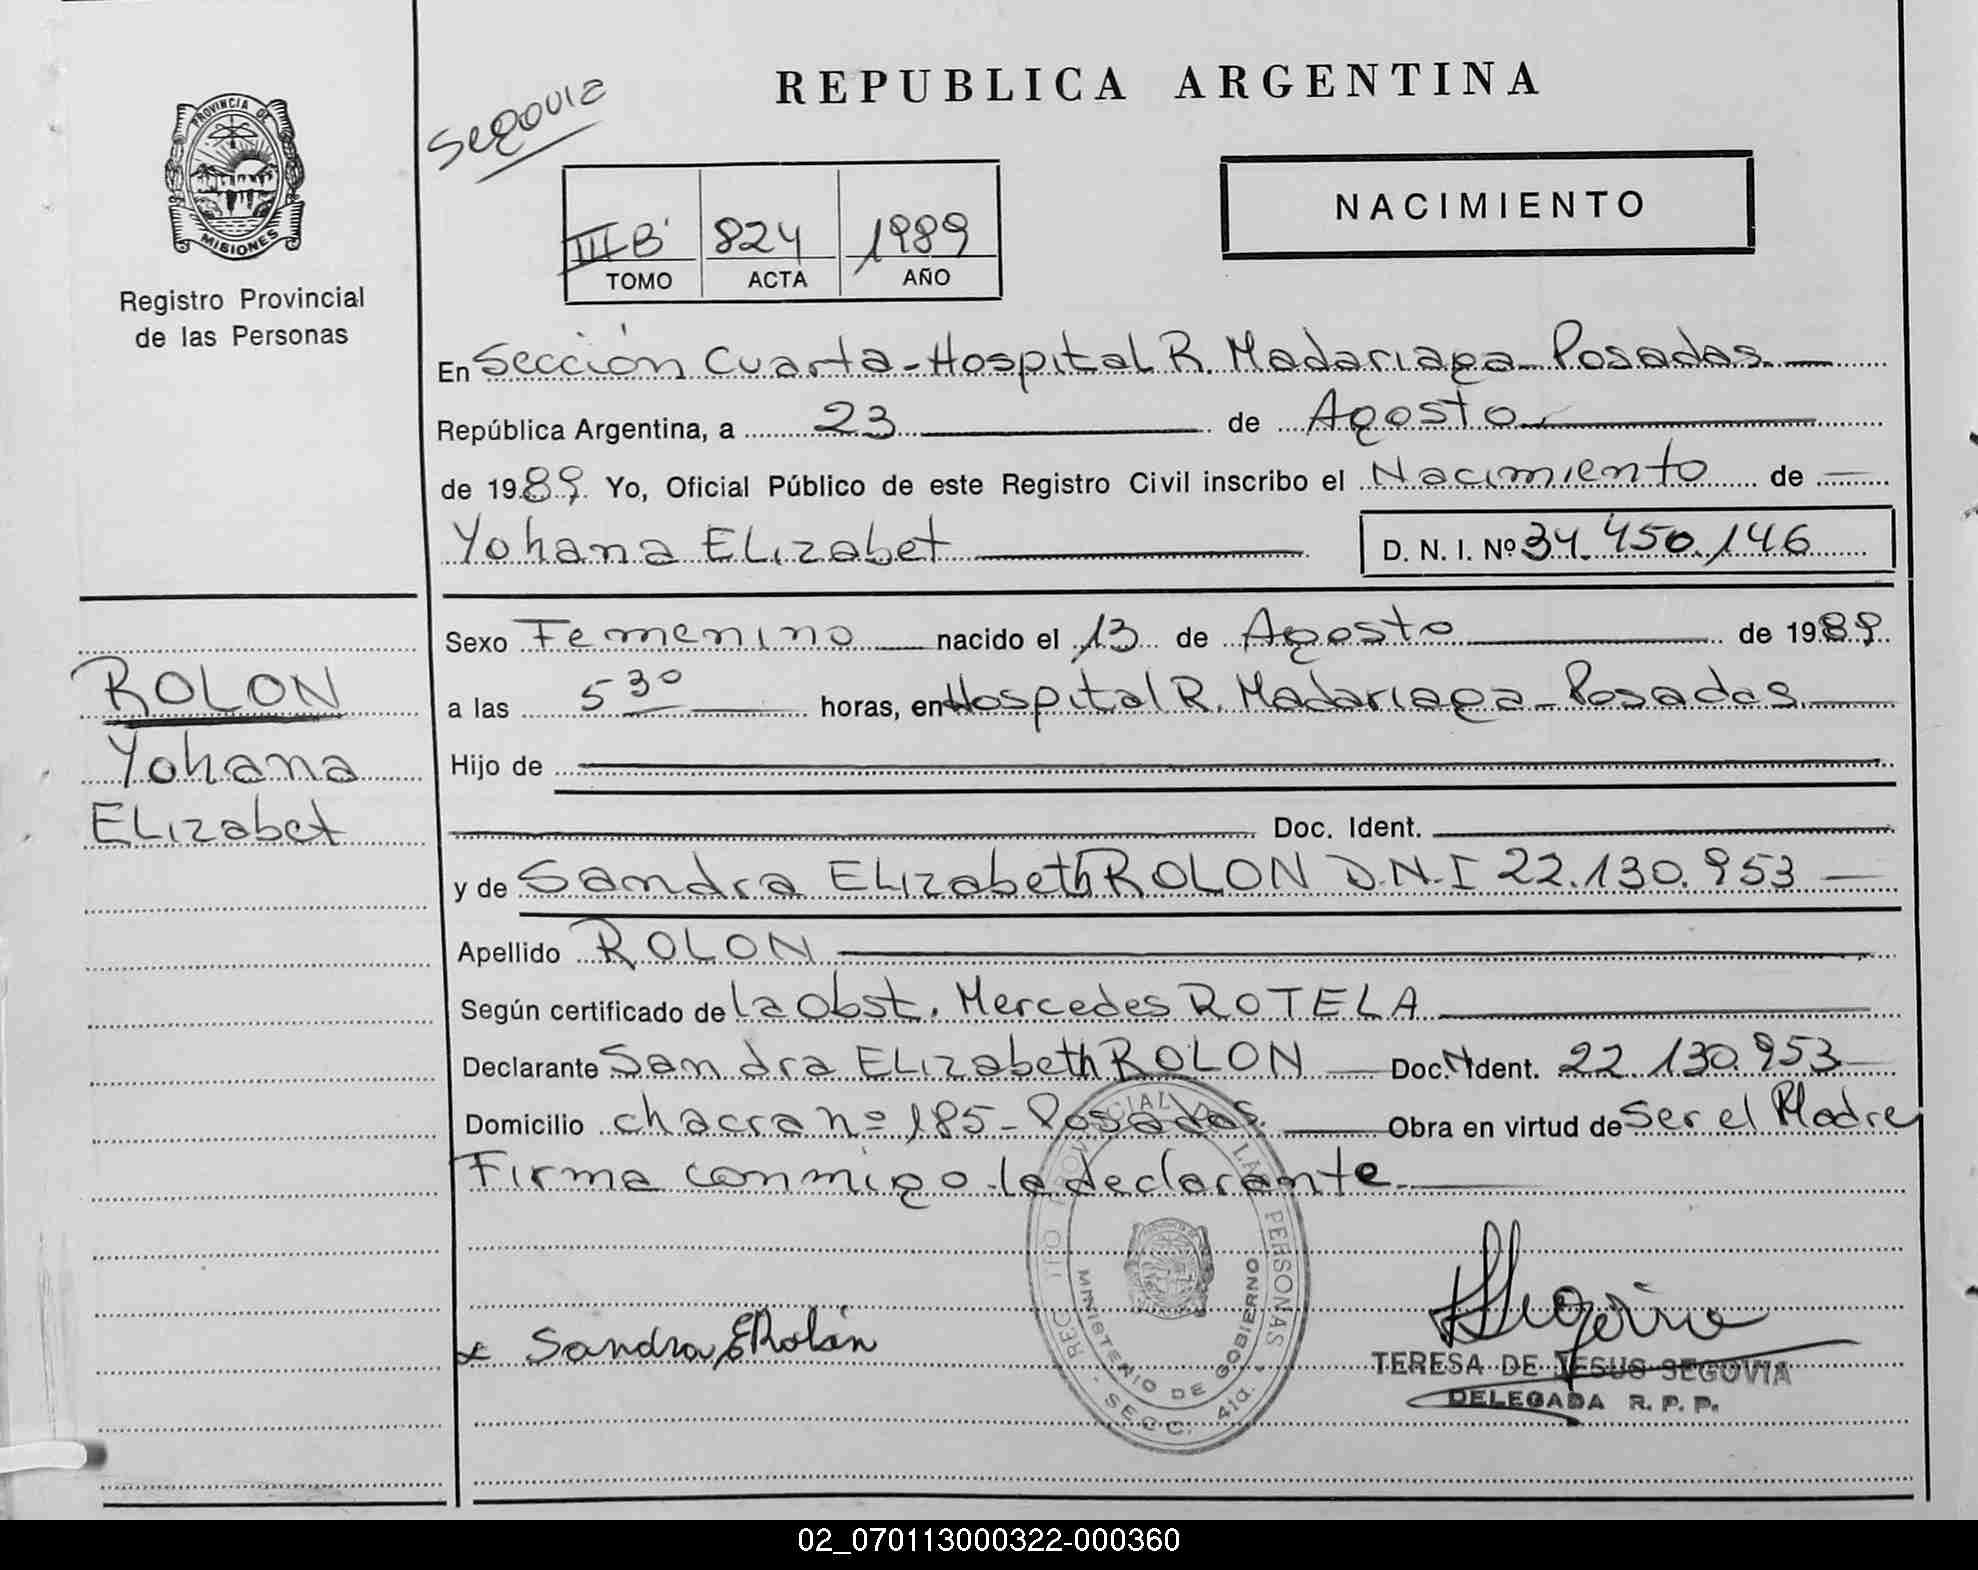 REPUBLICA ARGENTINA
Segovia
PROVINCIA DE
MISIONES
Registro Provincial
de las Personas
NACIMIENTO
III B' 824 1989
TOMO ACTA AÑO
En Sección Cuarta - Hospital R. Madariaga - Posadas
República Argentina, a 23 de Agosto
de 1989. Yo, Oficial Público de este Registro Civil inscribo el Nacimiento de
Yohana ELizabet D. N. I. Nº 34.450.146
Sexo Femenino nacido el 13 de Agosto de 1989.
a las 5 30 horas, en Hospital R. Madariaga - Posadas
Hijo de
Doc. Ident.
y de Sandra ELizabeth ROLON D.N.I 22.130.953
Apellido ROLON
Según certificado de la Obst. Mercedes ROTELA
Declarante Sandra ELizabeth ROLON Doc. N Ident. 22.130.953
Domicilio chacra nº 185 - Posadas. Obra en virtud de Ser el Madre
Firma conmigo la declarante
ROLON
Yohana
ELizabet
x Sandra E Rolón
REGISTRO PROVINCIAL DE LAS PERSONAS
MINISTERIO DE GOBIERNO
- SECC. 4ta. -
TERESA DE JESUS SEGOVIA
DELEGADA R. P. P.
02_070113000322-000360